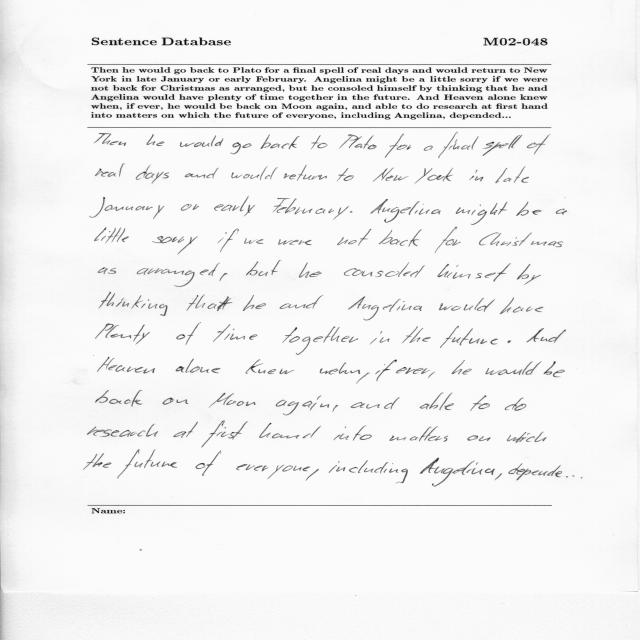 Sentence Database M02-048
Then he would go back to Plato for a final spell of real days and would return to New
York in late January or early February. Angelina might be a little sorry if we were
not back for Christmas as arranged, but he consoled himself by thinking that he and
Angelina would have plenty of time together in the future. And Heaven alone knew
when, if ever, he would be back on Moon again, and able to do research at first hand
into matters on which the future of everyone, including Angelina, depended...
Then he would go back to Plato for a final spell of
real days and would return to New York in late
January or early February. Angelina might be a
little sorry if we were not back for Christmas
as arranged, but he consoled himset by
thinking that he and Angelina would have
Plenty of time together in the future. And
Heaven alone knew wehn, if ever, he would be
back on Moon again, and able to do
research at first hand into matters on which
the future of everyone, including Angelina, depende...
Name: